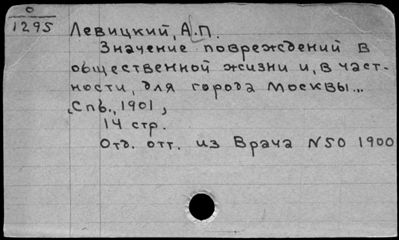 0
1295
Левицкий, А.П.
Значение повреждений в
общественной жизни и, в част-
ности, для города Москвы...
Спб., 1901,
14 стр.
Отд. отт. из Врача N50 1900